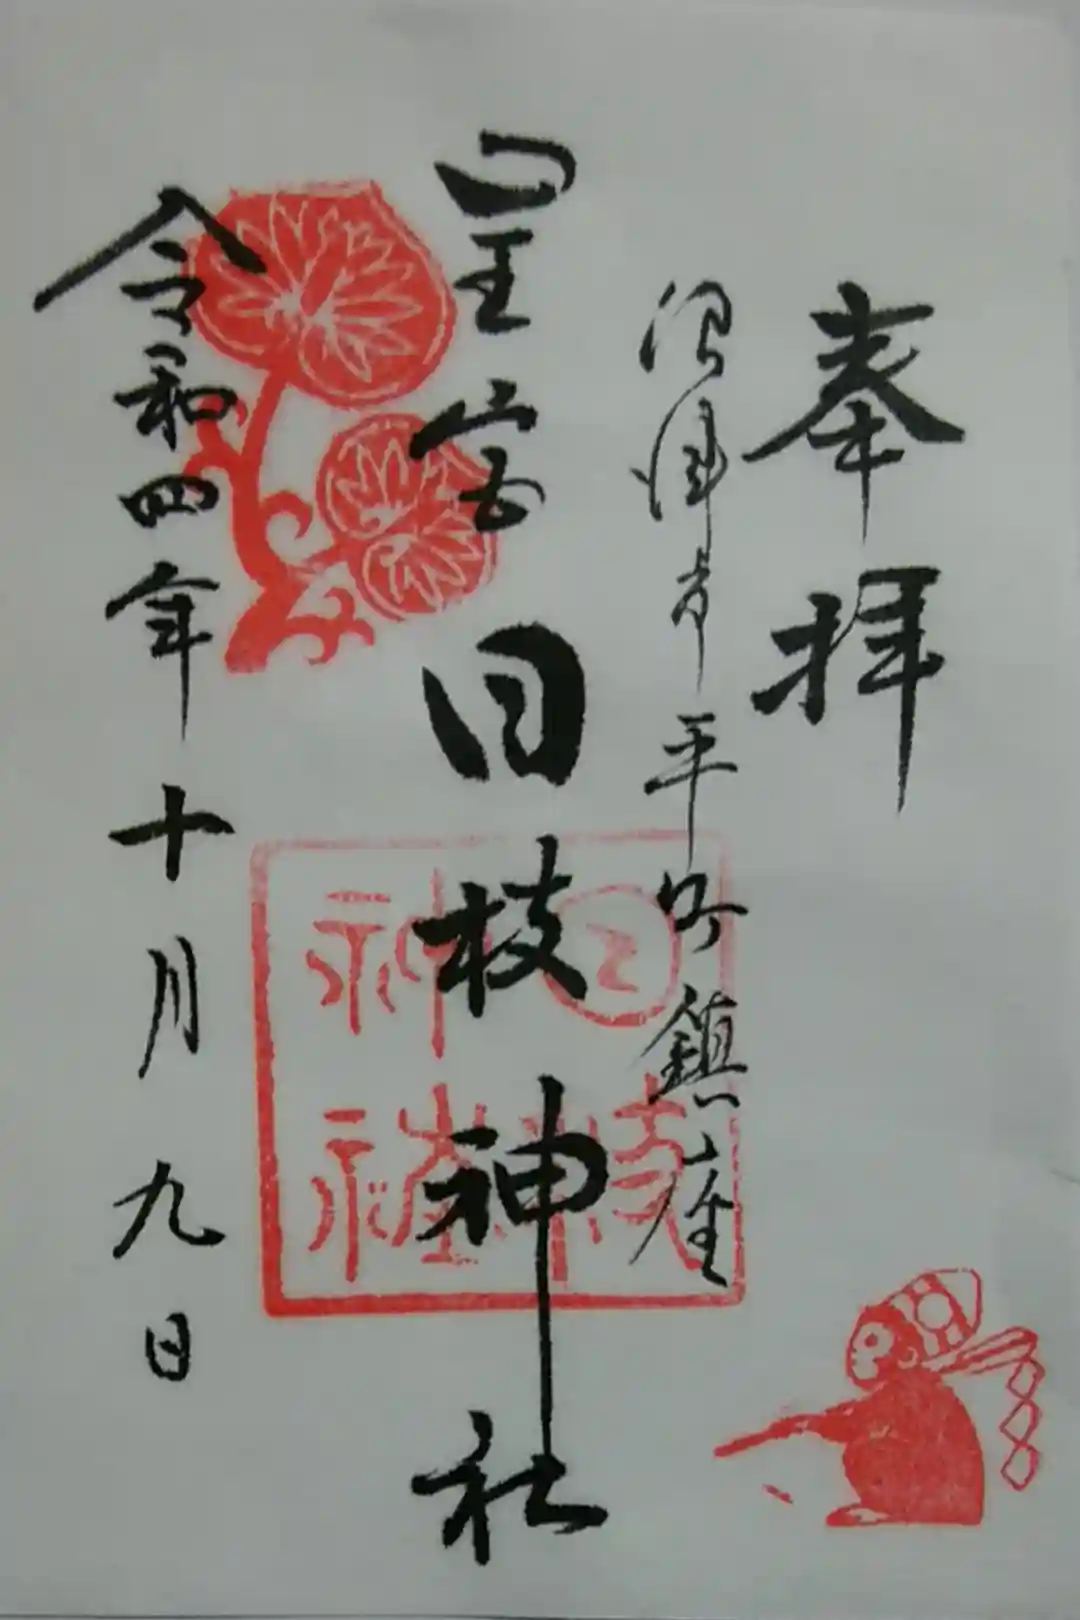 奉拝
沼津市平町鎮座
皇宮日枝神社
日枝神社
令和四年十月九日